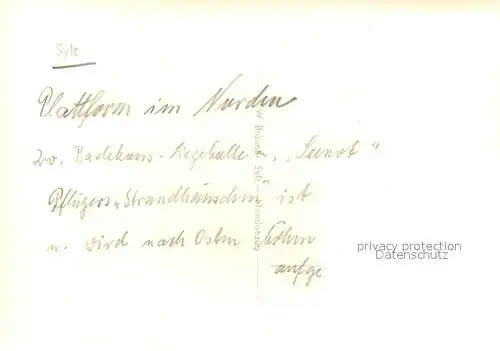 Sylt
Plattform im Norden
zw. Badehaus-Liegehalle u. „Seenot"
Pflügers „Strandhäuschen" ist
u. wird nach Osten
aufge
W Bräuner Sylt
privacy protection
Datenschutz